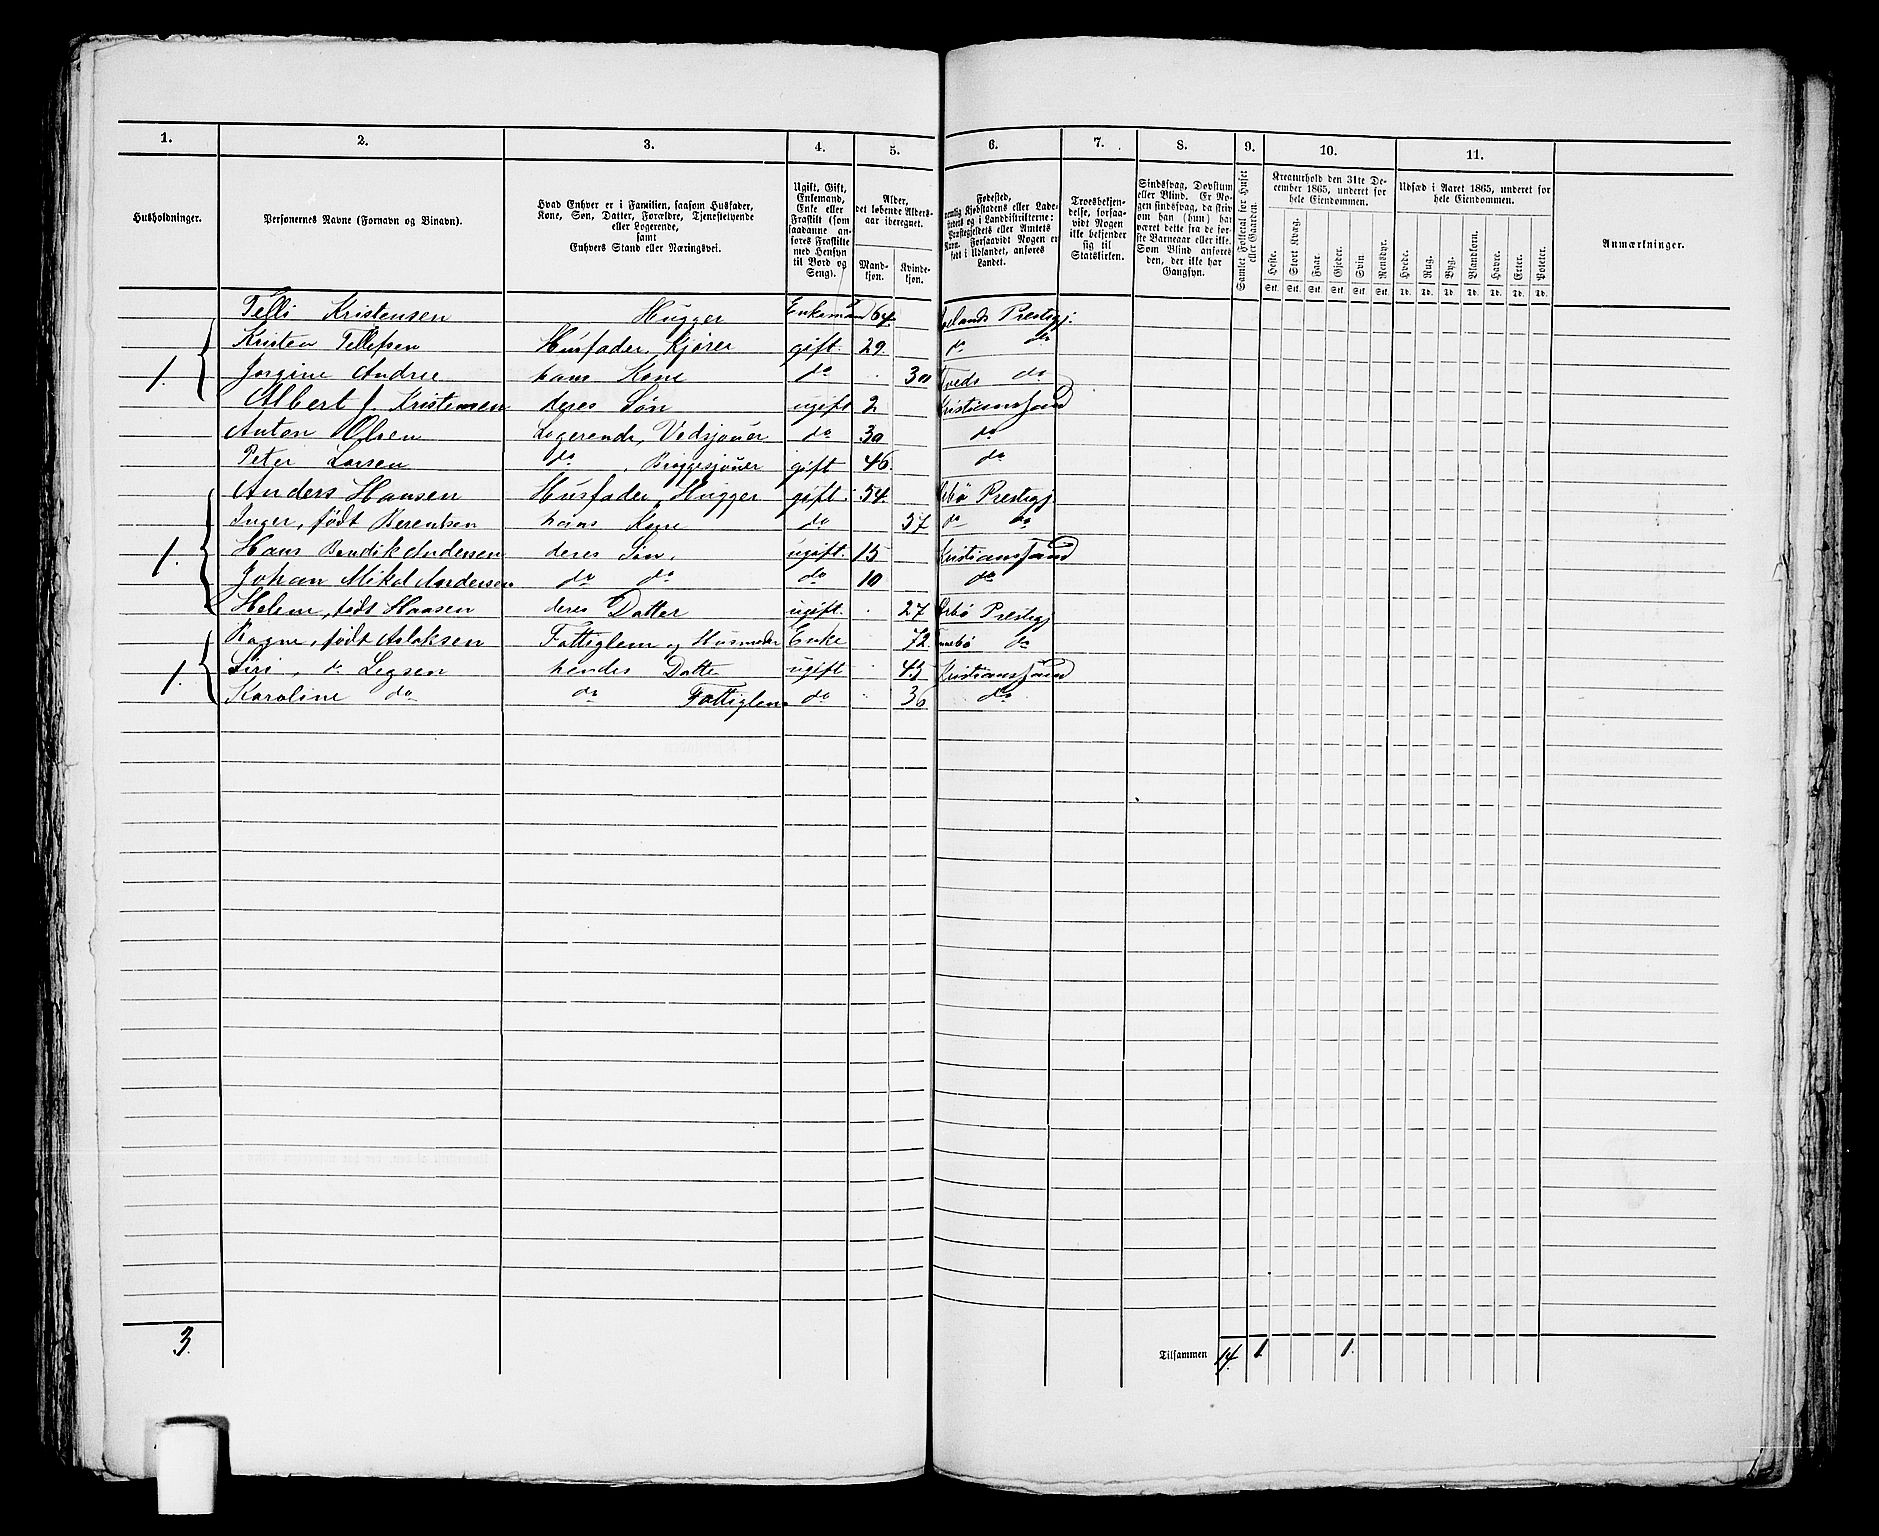 1. 2. 3. 4. 5. 6. 7. 8. 9. 10. 11.
Husholdninger.
Personernes Navne (Fornavn og Binavn).
Hvad Enhver er i Familien, saasom Husfader,
Kone, Søn, Datter, Forældre, Tjenestetyende
eller Logerende,
samt
Enhvers Stand eller Næringsvei.
Ugift, Gift,
Enkemand,
Enke eller
Fraskilt (som
saadanne an-
føres Fraskilte
med Hensyn
til Bord og
Seng).
Alder,
det løbende Alders-
aar iberegnet.
Mand-
kjøn.
Kvinde-
kjøn.
Fødested,
nemlig Kjøbstadens eller Lade-
stedets og i Landdistrikterne:
Præstegjeldets eller Amtets
Navn. Forsaavidt Nogen er
født i Udlandet, anføres
Landet.
Troesbekjen-
delse, forsaa-
vidt Nogen
ikke bekjender
sig til
Statskirken.
Sindssvag, Døvstum
eller Blind. Er No-
gen sindssvag, da skriv
om han (hun) har
været dette fra de før-
ste Barneaar eller ikke.
Som Blind anføres
den, der ikke har
Gangsyn.
Samlet Folketal for Huset
eller Gaarden.
Kreaturhold den 31te De-
cember 1865, underet for
hele Eiendommen.
Heste. Stort Kvæg. Faar. Gjeder. Svin. Rensdyr.
Stk. Stk. Stk. Stk. Stk. Stk.
Udsæd i Aaret 1865, underet for
hele Eiendommen.
Hvede. Rug. Byg. Blandkorn. Havre. Erter. Poteter.
Td. Td. Td. Td. Td. Td. Td.
Anmærkninger.
Kristensen Hugger Enkemand 64. Prestegj.
Kristen Tellefsen Husfader, Kjører gift. 29. do do
1. Jorgine Andree hans Kone do 30 Tveds do
Albert J. Kristensen deres Søn ugift 2 Kristianssand
Anton Olsen Logerende, Vedsjouer do 30 do
Peter Larsen do, Bryggesjouer gift 46 do
Anders Hansen Husfader, Hugger gift. 54. Prestegj
Inger, født Berentsen hans Kone do 57 do do
1. Hans Bendik Andersen deres Søn, ugift. 15 Kristianssand
Johan Mikal Andersen do do do 10 do
Helene, født Hansen deres Datter ugift. 27 Prestegj
Ragne, født Aslaksen Fattiglem og Husmoder Enke 72. do
1. Siri, do hendes Datte ugift 43 Kristianssand
Karoline do do Fattiglem do 36 do
3.
Tilsammen 14. 1. 1.